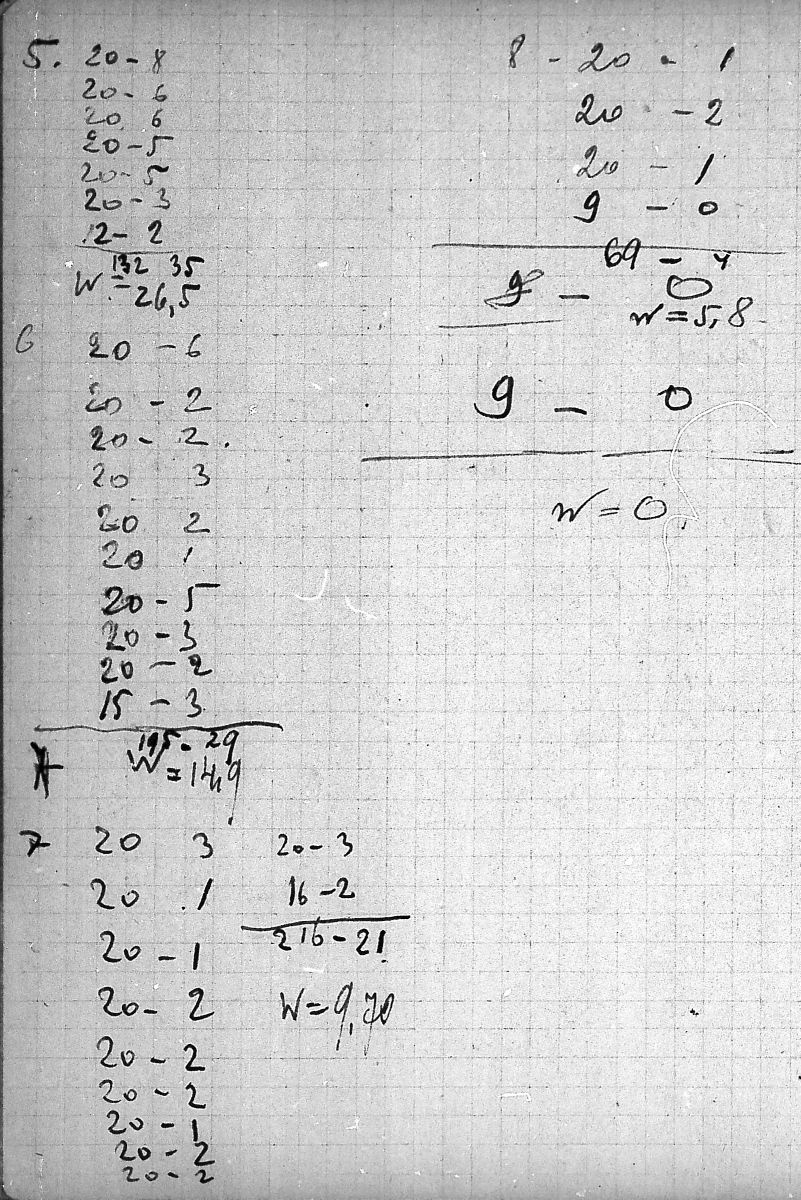 5. 20 - 8
20 - 6
20 6
20 - 5
20 - 5
20 - 3
12 - 2
132 35
W = 26,5
6 20 - 6
20 - 2
20 - 2.
20 3
20 2
20 1
20 - 5
20 - 3
20 - 2
15 - 3
195 - 29
W = 14,9
7 20 3
20 1
20 - 1
20 - 2
20 - 2
20 - 2
20 - 1
20 - 2
20 - 2
20 - 3
16 - 2
216 - 21
W = 9,70
8 - 20 - 1
20 - 2
20 - 1
9 - 0
69 - 4
9 - 0
W = 5,8
9 - 0
W = 0